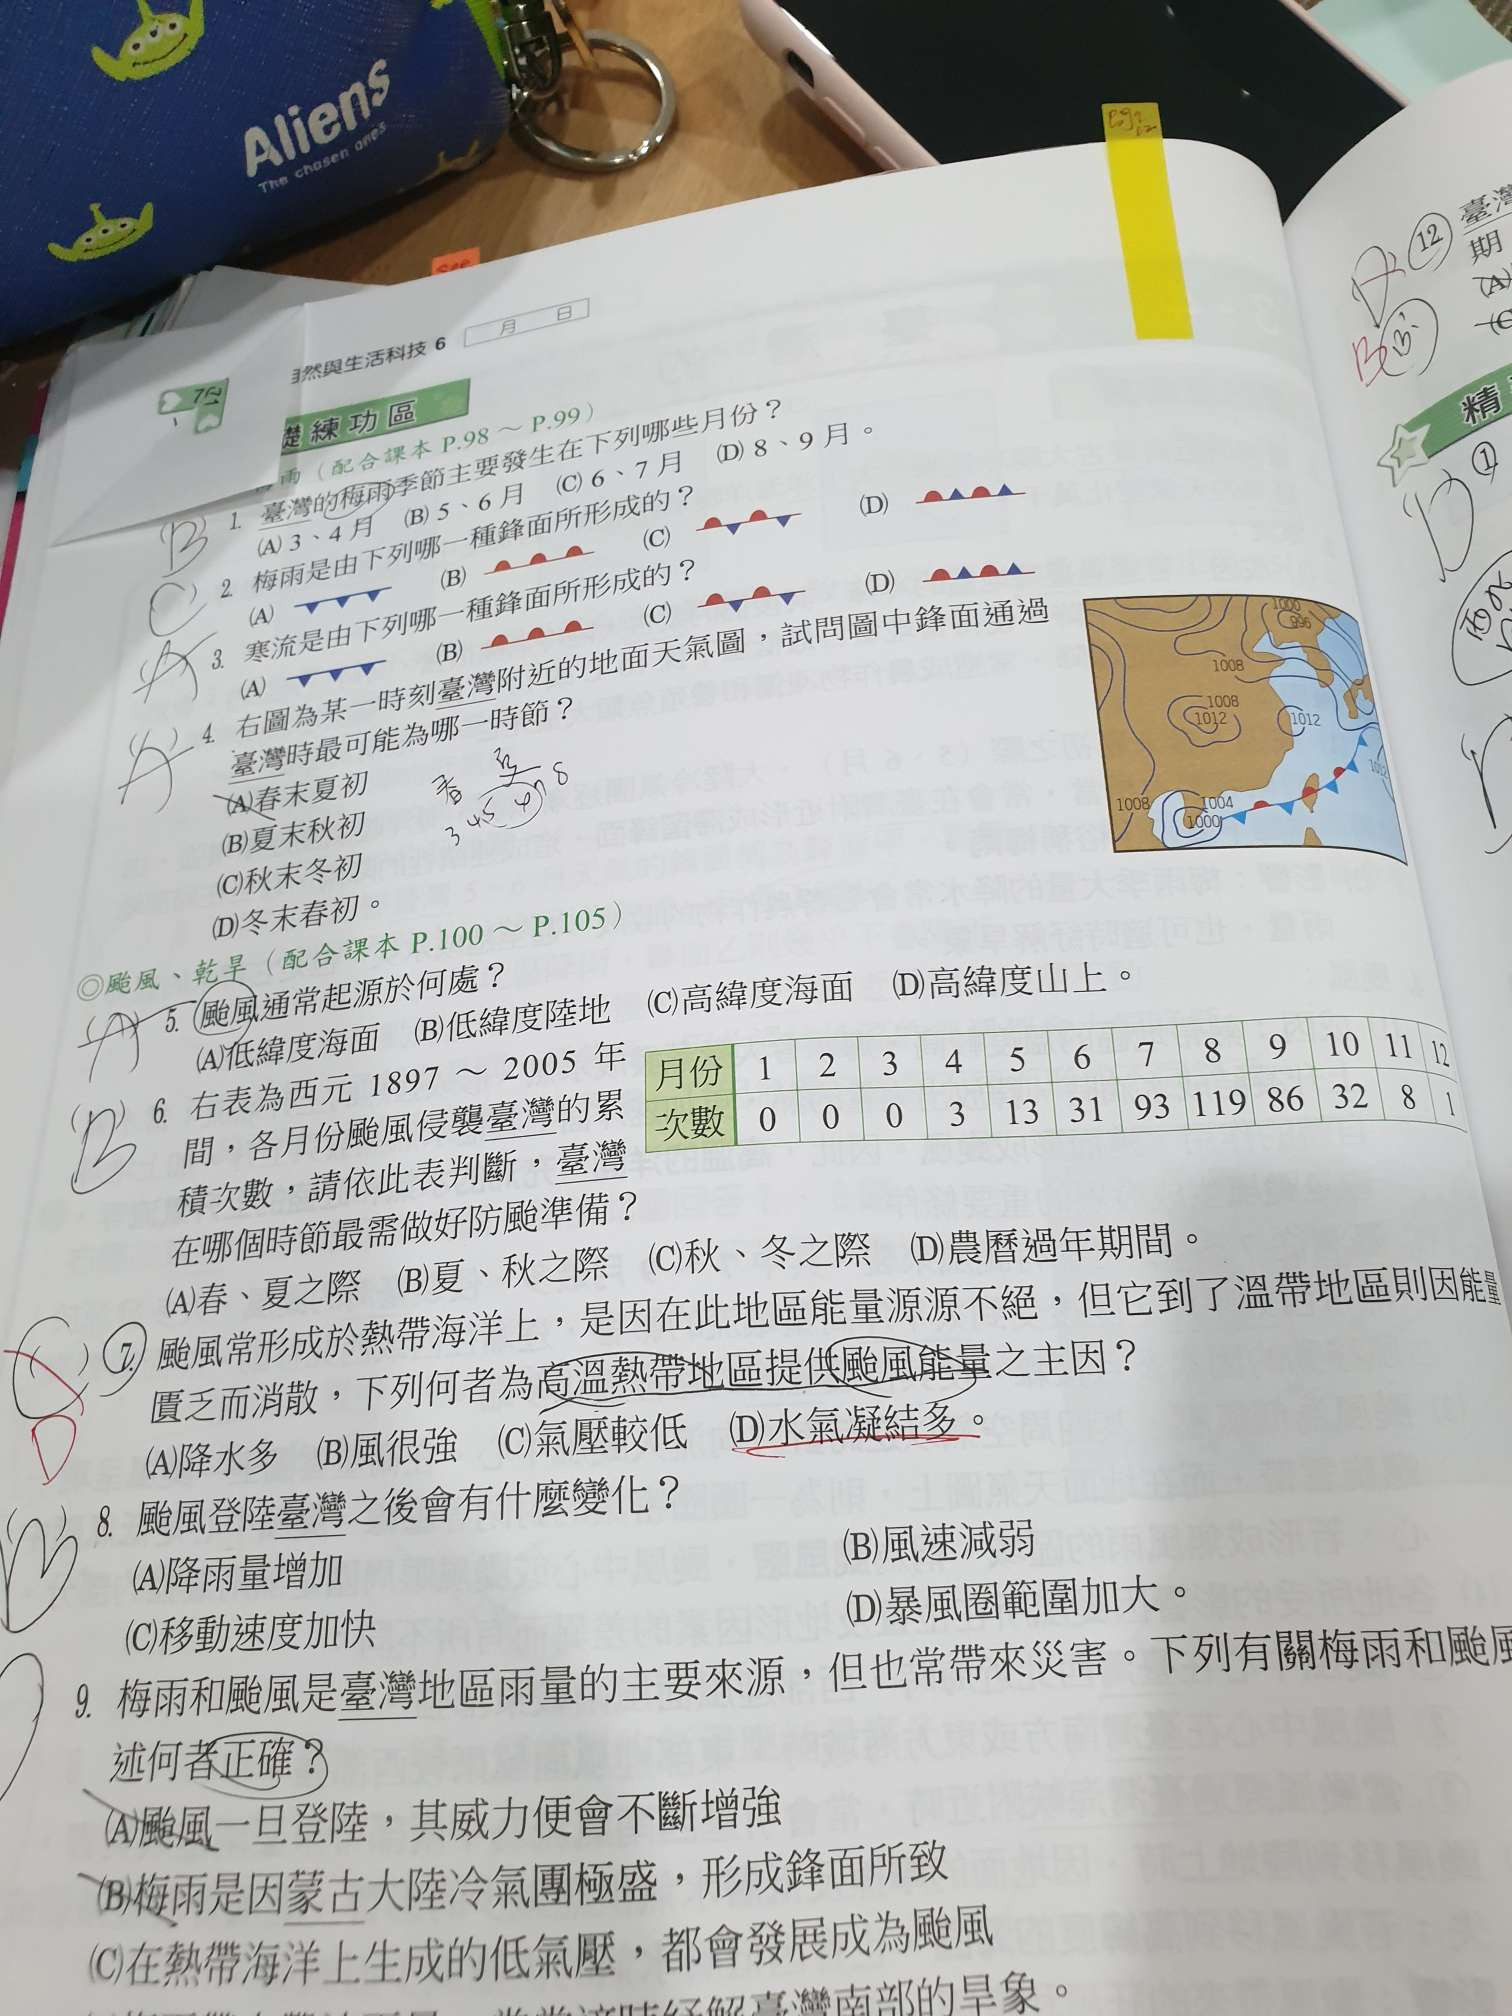 Aliens
The chosen ones
See
自然與生活科技 6
月 日
礎練功區
雨（配合課本 P.98～P.99）
B 1. 臺灣的梅雨季節主要發生在下列哪些月份？
(A) 3、4 月 (B) 5、6 月 (C) 6、7 月 (D) 8、9 月。
C 2. 梅雨是由下列哪一種鋒面所形成的？
(A) (B) (C) (D)
A 3. 寒流是由下列哪一種鋒面所形成的？
(A) (B) (C) (D)
(A) 4. 右圖為某一時刻臺灣附近的地面天氣圖，試問圖中鋒面通過
臺灣時最可能為哪一時節？
(A)春末夏初
(B)夏末秋初
(C)秋末冬初
(D)冬末春初。
春 夏
3 4 5
1000
996
1008
1008
1012
1012
1012
1008
1004
1000
◎颱風、乾旱（配合課本 P.100～P.105）
(A) 5. 颱風通常起源於何處？
(A)低緯度海面 (B)低緯度陸地 (C)高緯度海面 (D)高緯度山上。
(B) 6. 右表為西元 1897～2005 年
間，各月份颱風侵襲臺灣的累
積次數，請依此表判斷，臺灣
在哪個時節最需做好防颱準備？
月份 1 2 3 4 5 6 7 8 9 10 11 12
次數 0 0 0 3 13 31 93 119 86 32 8 1
(A)春、夏之際 (B)夏、秋之際 (C)秋、冬之際 (D)農曆過年期間。
( ) 7. 颱風常形成於熱帶海洋上，是因在此地區能量源源不絕，但它到了溫帶地區則因能量
D
匱乏而消散，下列何者為高溫熱帶地區提供颱風能量之主因？
(A)降水多 (B)風很強 (C)氣壓較低 (D)水氣凝結多。
(B) 8. 颱風登陸臺灣之後會有什麼變化？
(A)降雨量增加 (B)風速減弱
(C)移動速度加快 (D)暴風圈範圍加大。
9. 梅雨和颱風是臺灣地區雨量的主要來源，但也常帶來災害。下列有關梅雨和颱風
述何者正確？
(A)颱風一旦登陸，其威力便會不斷增強
(B)梅雨是因蒙古大陸冷氣團極盛，形成鋒面所致
(C)在熱帶海洋上生成的低氣壓，都會發展成為颱風
臺灣南部的旱象。
12 臺灣
期
(A)
(C
D
B
B
精
D 1